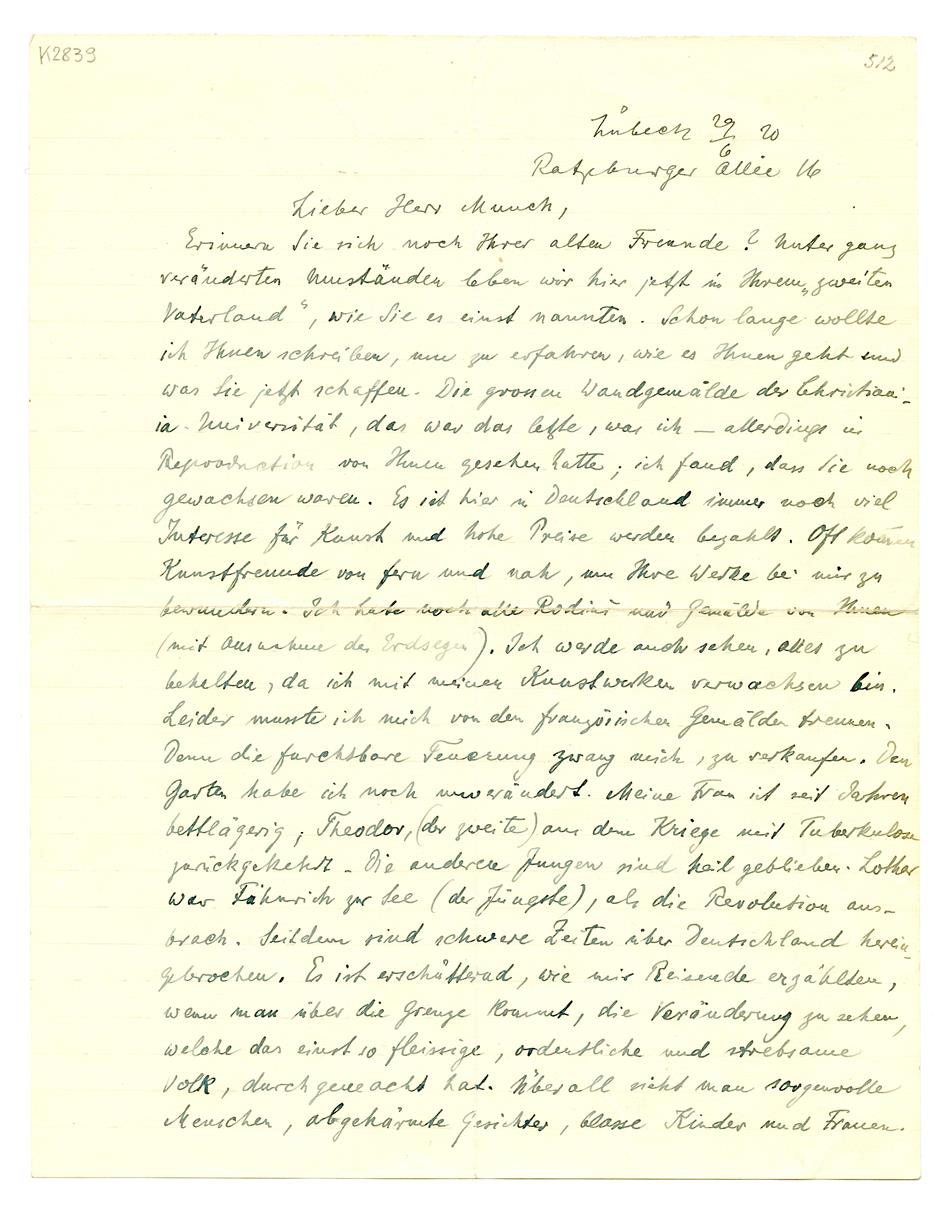 K2839
512
Lübeck 29/6 20
Ratzeburger Allee 16
Lieber Herr Munch,
Erinnern Sie sich noch Ihrer alten Freunde? Unter ganz
veränderten Umständen leben wir hier jetzt in Ihrem „zweiten
Vaterland“, wie Sie es einst nannten. Schon lange wollte
ich Ihnen schreiben, um zu erfahren, wie es Ihnen geht und
was Sie jetzt schaffen. Die grossen Wandgemälde der Christian-
ia-Universität, das war das letzte, was ich – allerdings in
Reproduction von Ihnen gesehen hatte; ich fand, dass Sie noch
gewachsen waren. Es ist hier in Deutschland immer noch viel
Interesse für Kunst und hohe Preise werden bezahlt. Oft kommen
Kunstfreunde von fern und nah, um Ihre Werke bei mir zu
bewundern. Ich habe noch alle Rodins und Gemälde von Ihnen
(mit Ausnahme des Erdsegen). Ich werde auch sehen, alles zu
behalten, da ich mit meinen Kunstwerken verwachsen bin.
Leider musste ich mich von den französischen Gemälden trennen.
Denn die furchtbare Teuerung zwang mich, zu verkaufen. Den
Garten habe ich noch unverändert. Meine Frau ist seit Jahren
bettlägerig; Theodor, (der zweite) aus dem Kriege mit Tuberkulose
zurückgekehrt – Die anderen Jungen sind heil geblieben. Lothar
war Fähnrich zur See (der Jüngste), als die Revolution aus-
brach. Seitdem sind schwere Zeiten über Deutschland herein-
gebrochen. Es ist erschütternd, wie mir Reisende erzählten,
wenn man über die Grenze kommt, die Veränderung zu sehen,
welche das einst so fleissige, ordentliche und strebsame
Volk, durchgemacht hat. Überall sieht man sorgenvolle
Menschen, abgehärmte Gesichter, blasse Kinder und Frauen.